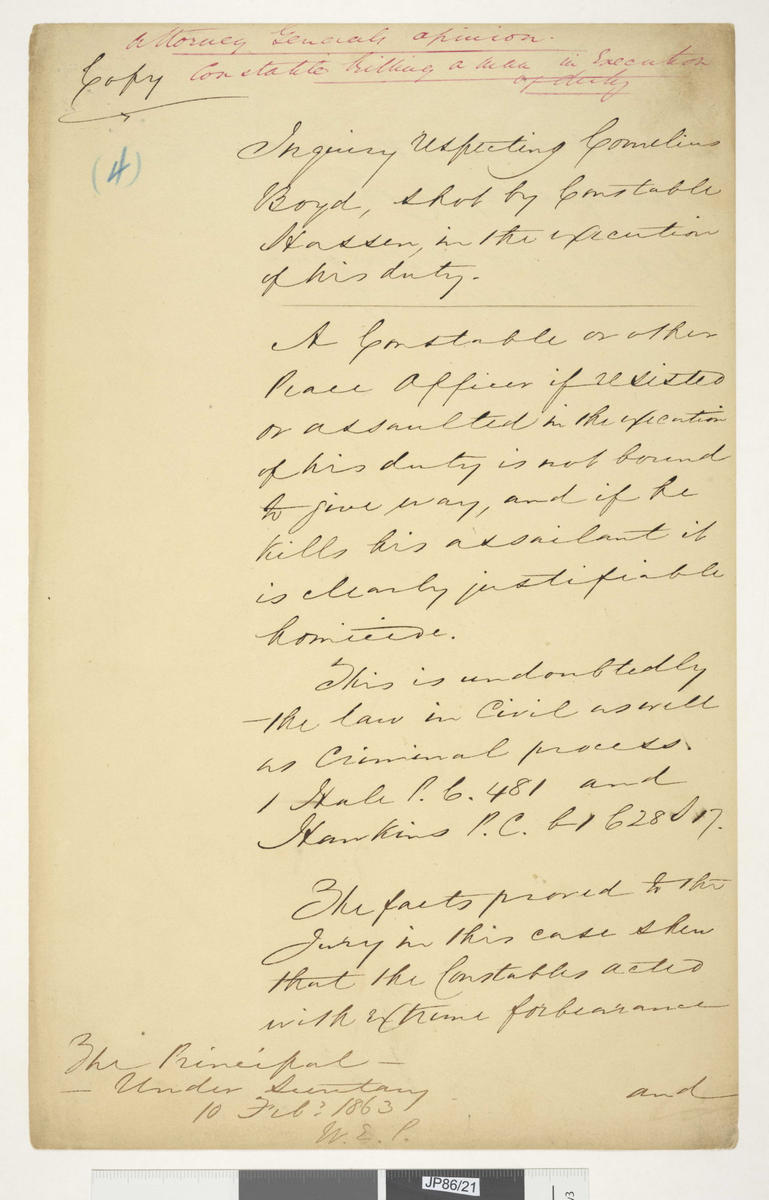 Attorney Generals opinion.
Copy Constable killing a man in Execution
of duty
(4)
Inquiry respecting Cornelius
Boyd, shot by Constable
Hassen, in the execution
of his duty.
A Constable or other
Peace Officer if resisted
or assaulted in the execution
of his duty is not bound
to give way, and if he
kills his assailant it
is clearly justifiable
homicide.
This is undoubtedly
the law in Civil as well
as Criminal process.
1 Hale P.C. 481 and
Hawkins P.C. b 1 C 28 S 17.
The facts proved to the
Jury in this case shew
that the Constables acted
with extreme forbearance
and
The Principal
Under Secretary
10 Feby 1863
W.E.P.
JP86/21